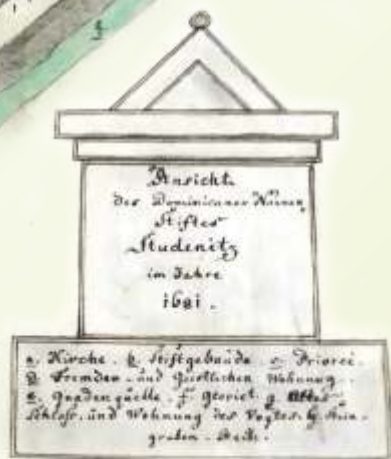 Ansicht
des Dominicaner Nonnen
Stiftes
Studenitz
im Jahre
1681.
a. Kirche. b. Stiftgebäude c. Priorei.
d. Fremden- und Geistlichen Wohnung.
e. Gnadenquelle. f. g. Altes
Schloss, und Wohnung des Vogtes. h.
graben.